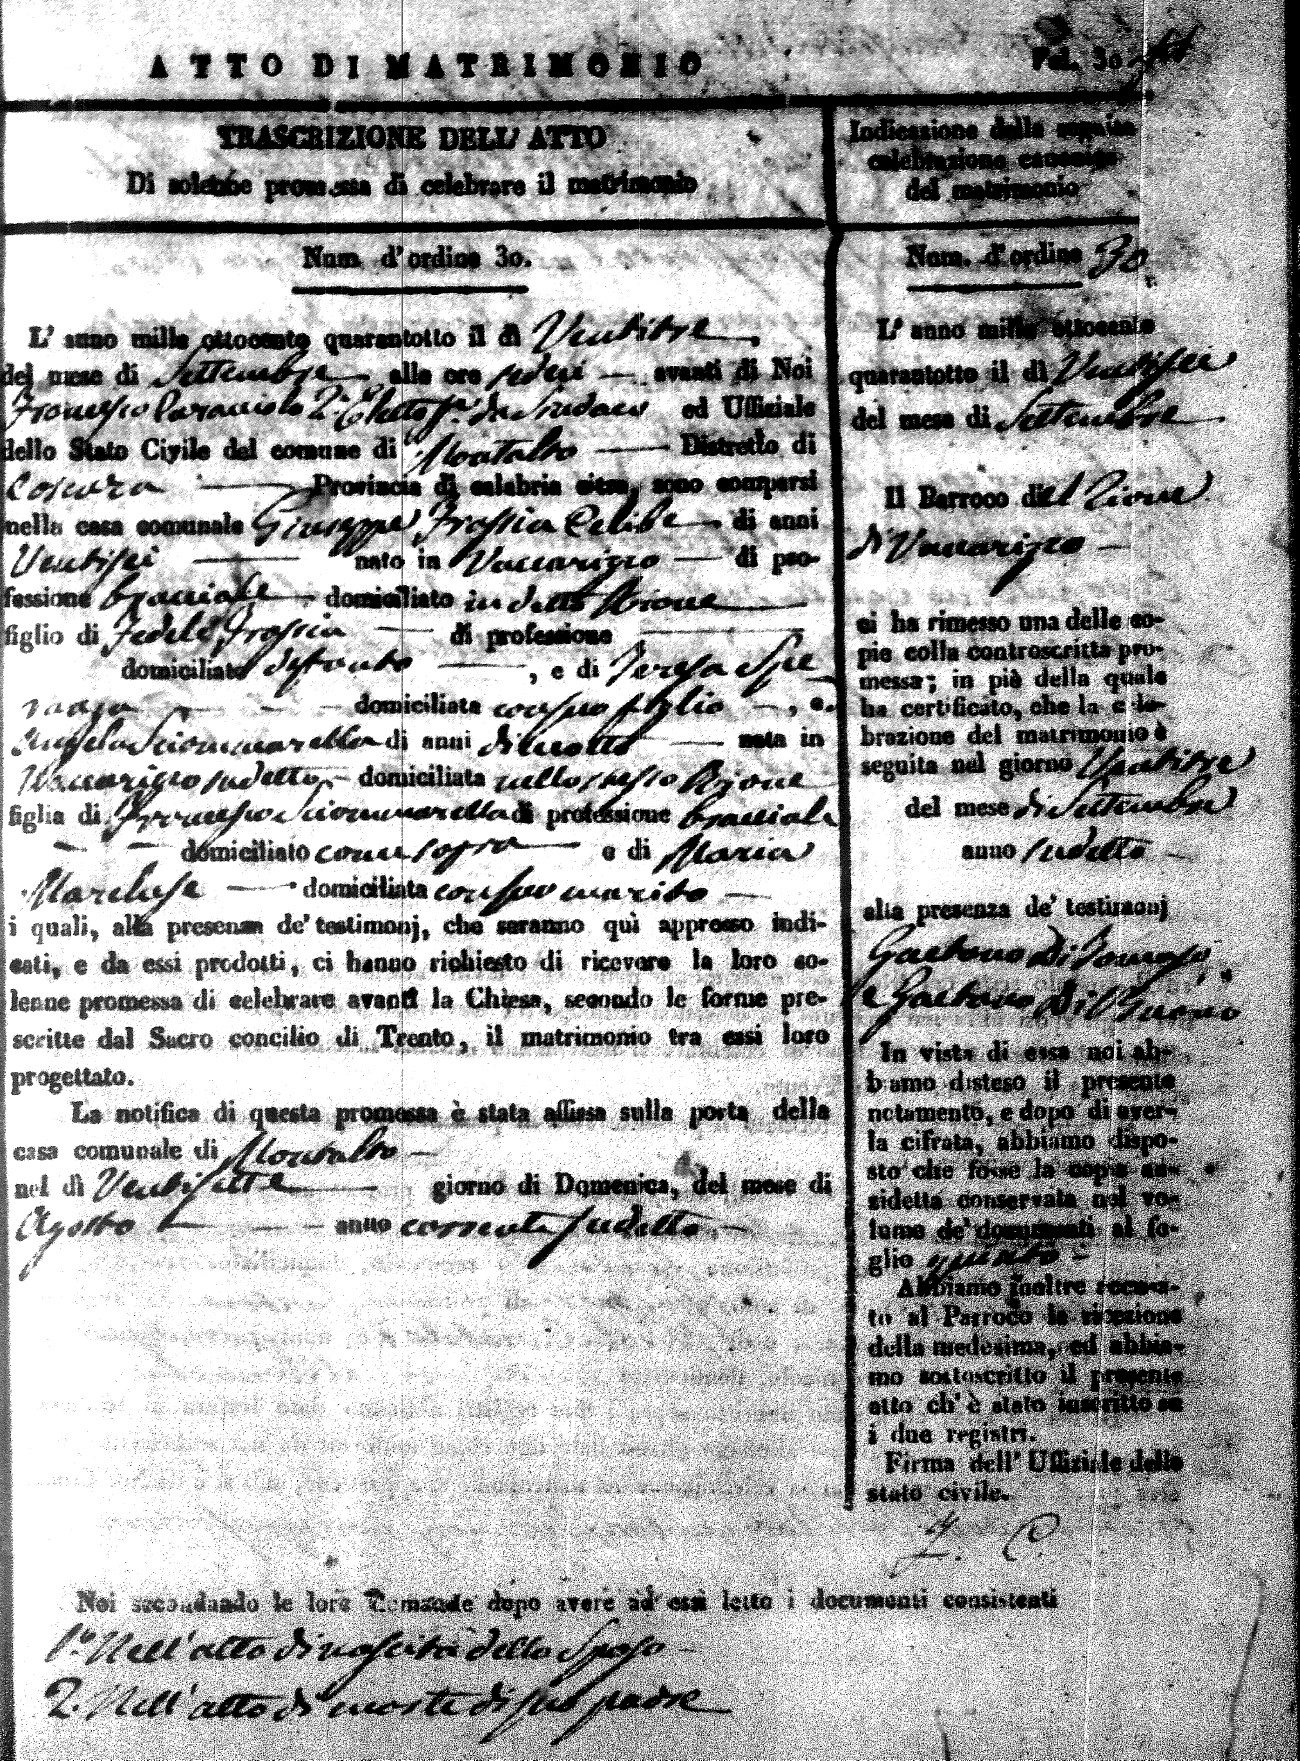 ATTO DI MATRIMONIO
Fol. 30
TRASCRIZIONE DELL' ATTO
Di solenne promessa di celebrare il matrimonio
Num. d'ordine 30.
L' anno mille ottocento quarantotto il dì Ventitre,
del mese di Settembre alle ore sedeci avanti di Noi
Francesco 2.° Eletto ff. da Sindaco ed Uffiziale
dello Stato Civile del comune di Montalto Distretto di
Cosenza Provincia di calabria citra, sono comparsi
nella casa comunale Giuseppe Frassia Celibe di anni
Ventisei nato in Vaccarizzo di pro-
fessione bracciale domiciliato in detto Rione
figlio di Fedele Frassia di professione
domiciliato defunto , e di Teresa Spe
domiciliata con suo figlio , e
Angela Sciammarella di anni diciotto nata in
Vaccarizzo sudetto domiciliata nello stesso Rione
figlia di Francesco Sciammarella di professione bracciale
domiciliato come sopra e di Maria
Marchese domiciliata con suo marito
i quali, alla presenza de' testimonj, che saranno quì appresso indi-
cati, e da essi prodotti, ci hanno richiesto di ricevere la loro so-
lenne promessa di celebrare avanti la Chiesa, secondo le forme pre-
scritte dal Sacro concilio di Trento, il matrimonio tra essi loro
progettato.
La notifica di questa promessa è stata affissa sulla porta della
casa comunale di Montalto
nel dì Ventisette giorno di Domenica, del mese di
Agosto anno corrente sudetto.
Noi secondando le loro domande dopo avere ad essi letto i documenti consistenti
1.° Nell'atto di nascita dello Sposo
2. Nell'atto di morte di suo padre
Indicazione della seguita
celebrazione canonica
del matrimonio
Num. d'ordine 30
L' anno mille ottocento
quarantotto il dì Ventisei
del mese di Settembre
Il Parroco del Rione
di Vaccarizzo
ci ha rimesso una delle co-
pie colla controscritta pro-
messa; in piè della quale
ha certificato, che la cele-
brazione del matrimonio è
seguita nel giorno Ventitre
del mese di Settembre
anno sudetto
alla presenza de' testimonj
Gaetano Di Tomaso
e Gaetano Del Buono
In vista di essa noi ab-
biamo disteso il presente
notamento, e dopo di aver-
la cifrata, abbiamo dispo-
sto che fosse la copia an-
zidetta conservata nel vo-
lume de' documenti al fo-
glio quinto
Abbiamo inoltre accusa-
to al Parroco la ricezione
della medesima, ed abbia-
mo sottoscritto il presente
atto ch' è stato inscritto su
i due registri.
Firma dell' Uffiziale dello
stato civile.